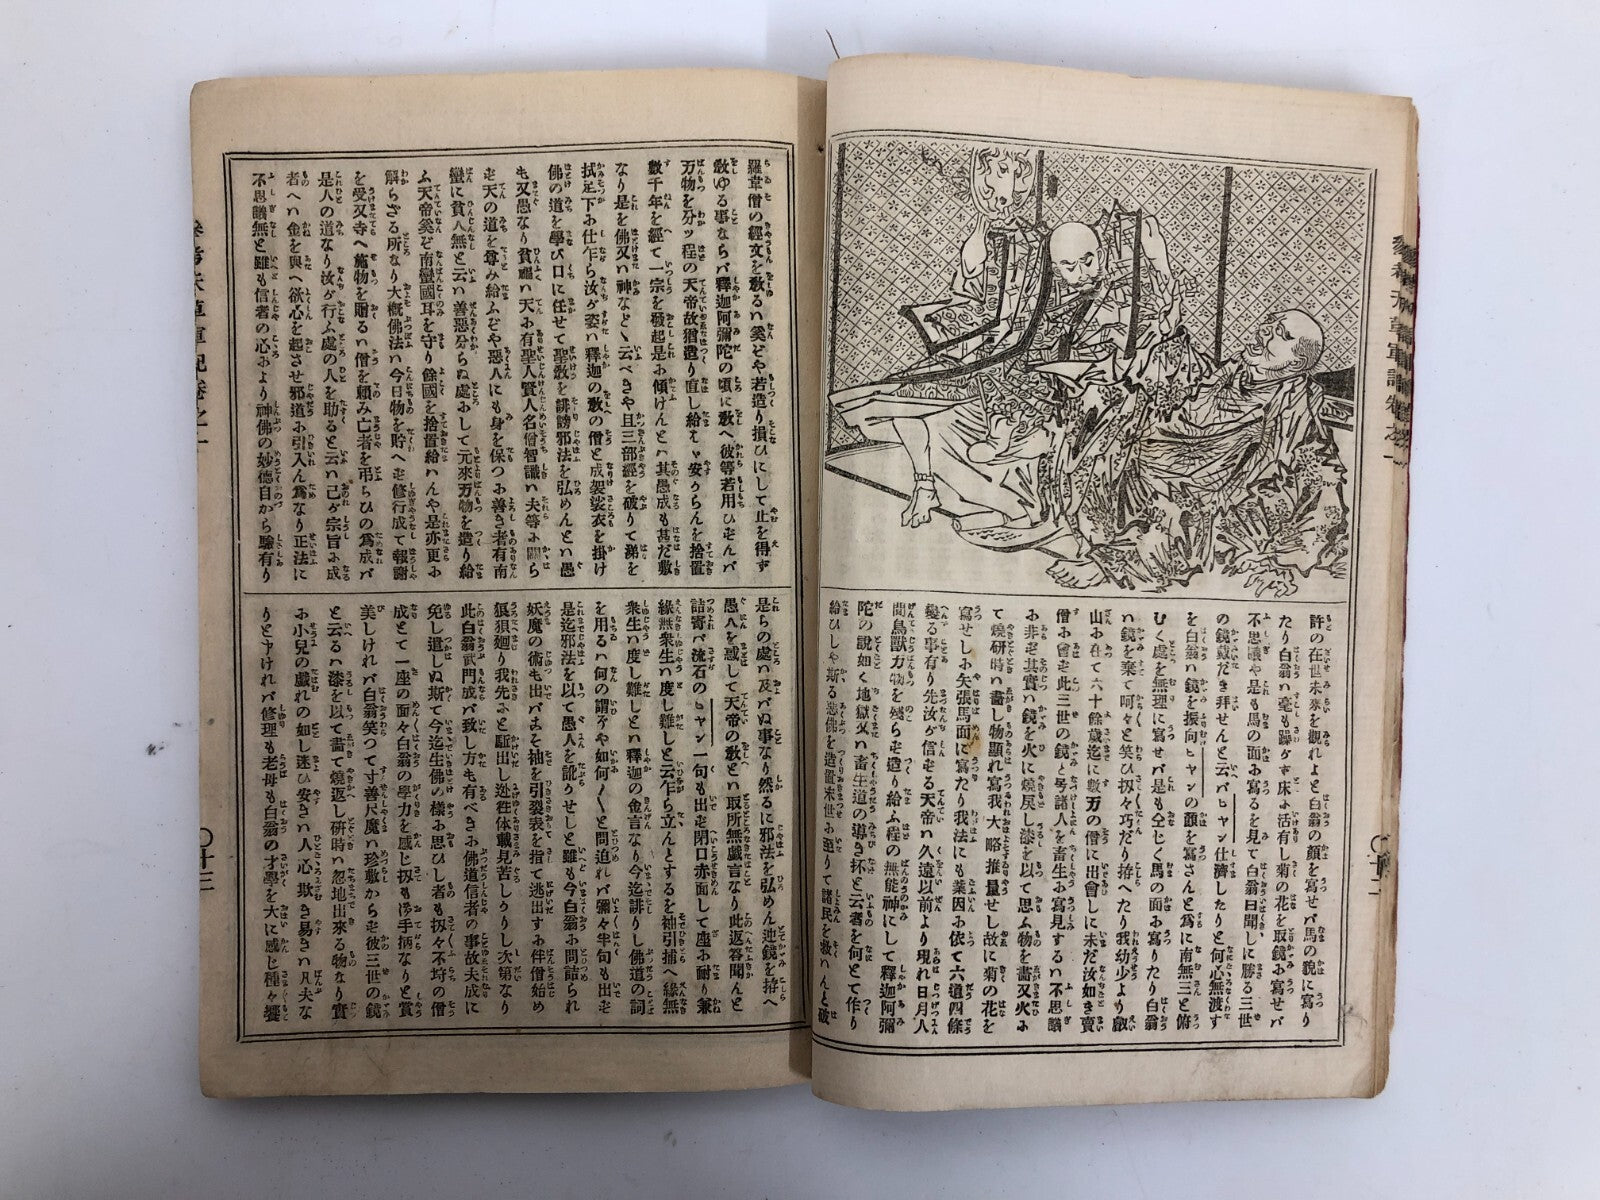 許の在世未來を觀れよと白翁の顏を寫せバ馬の貌に寫り
たり白翁ハ毫も躁ケず床ふ活有し菊の花を取鏡ふ寫せバ
不思議や是も馬の面ふ寫るを見て白翁曰聞しに勝る三世
の鏡戴だき拜せんと云バヒャン仕濟したりと何心無渡す
を白翁ハ鏡を振向ヒャンの顏を寫さんと爲に南無三と俯
むく處を無理に寫せバ是も仝じく馬の面ふ寫りたり白翁
ハ鏡を棄て呵々と笑ひ扨々巧だり拵へたり我幼少より叡
山ふ在て六十餘歲迄に數万の僧に出會しに未だ汝如き賣
僧ふ會ず此三世の鏡と号諸人を畜生ふ寫見するハ不思議
ふ非ず其實ハ鏡を火に燒戾し漆を以て思ふ物を畵又火ふ
て燒硏時ハ畵し物顯れ寫我大略推量せし故に菊の花を
寫せしふ矢張馬面に寫たり我法にも業因ふ依て六道四條
變る事有り先汝ケ信ずる天帝ハ久遠以前より現れ日月人
間鳥獸万物を殘らず造り給ふ程の無能神にして釋迦阿彌
陀の說如く地獄又ハ畜生道の導き抔と云者を何とて作り
給ひしや斯る惡佛を造置末世ふ至りて諸民を救ハんと破
羅韋僧の經文を敎るハ奚どや若造り損ひにして止を得ず
敎ゆる事ならバ釋迦阿彌陀の頃に敎へ彼等若用ひずんバ
万物を分ッ程の天帝故猶造り直し給ハヾ安からんを捨置
數千年を經て一宗を發起し是ふ傾けんとハ其愚成も甚だ敷
なり是を佛又ハ神などゝ云べきや且三部經を破りて涕を
拭足下ふ仕乍ら汝ケ姿ハ釋迦の敎の僧と成袈裟衣を掛け
佛の道を學び口に任せて聖敎を誹謗邪法を弘めんとハ愚
も又愚なり貧福ハ天ふ有聖人賢人名僧智識ハ夫等ふ關ら
ず天の道を尊み給ふぞや惡人にも身を保つふ善き者有南
蠻に貧人無と云ハ善惡分らぬ處ふして元來万物を造り給
ふ天帝奚ぞ南蠻國耳を守り餘國を捨置給ハんや是亦更ふ
解らざる所なり大槪佛法ハ今日物を貯へず修行成て報謝
を受又寺へ施物を贈るハ僧を頼み亡者を吊らひの爲成バ
是人の道なり汝ケ行ふ處の人を助ると云ハ己ケ宗旨ふ成
者へハ金を與へ欲心を起させ邪道ふ引入ん爲なり正法に
不思議無と雖も信者の心ふより神佛の妙德自から驗有り
是らの處ハ及バぬ事なり然るに邪法を弘めん逆鏡を拵へ
愚人を惑して天帝の敎とハ取所無戲言なり此返答聞んと
詰寄バ流石のヒャン一句も出ず閉口赤面して座ふ耐り兼
緣無衆生ハ度し難しと云乍ら立んとするを袖引捕へ緣無
衆生ハ度し難しとハ釋迦の金言なり今迄誹りし佛道の詞
を用るハ何の謂ぞや如何〳〵と問迫れバ彌々半句も出ず
是迄邪法を以て愚人を訛りせしと雖も今白翁ふ問詰られ
妖魔の術も出バこそ袖を引裂裳を指て逃出すふ伴僧始め
狼狽廻り我先ふと駈出し迯往体載見苦しかりし次第なり
此白翁武門成バ致し方も有べきふ佛道信者の事故夫成に
免し遣しぬ斯て今迄生佛の樣ふ思ひし者も扨々不埓の僧
成とて一座の面々白翁の學力を感じ扨も御手柄なりと賞
美しけれバ白翁笑つて寸善尺魔の珍敷からず彼三世の鏡
と云るハ漆を以て畵て燒返し硏時ハ忽地出來る物なり實
ふ小兒の戲れの如し迷ひ安きハ人心欺き易きハ凡夫な
りと申けれバ修理も老母も白翁の才學を大に感じ種々饗
參考天草軍記卷之一
〇十二
參考天草軍記卷之一
〇十三